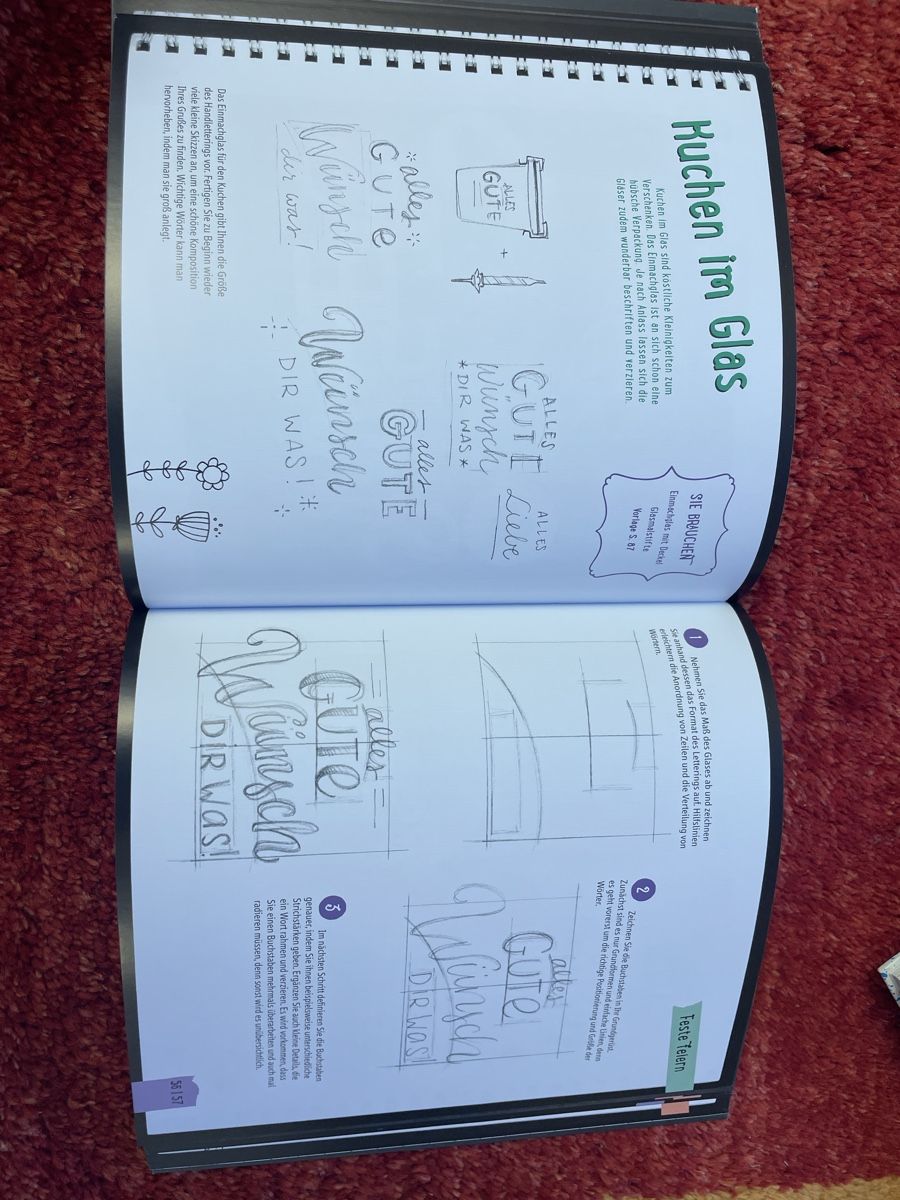 Kuchen im Glas
Kuchen im Glas sind köstliche Kleinigkeiten zum
Verschenken. Das Einmachglas ist an sich schon eine
hübsche Verpackung. Je nach Anlass lassen sich die
Gläser zudem wunderbar beschriften und verzieren.
SIE BRAUCHEN
Einmachglas mit Deckel
Glasmalstifte
Vorlage S. 87
ALLES
GUTE
+
ALLES
GUTE
Wünsch
*DIR WAS*
ALLES
Liebe
alles
GUTE
Wünsch
dir was!
alles
GUTE
Wünsch
DIR WAS!
Das Einmachglas für den Kuchen gibt Ihnen die Größe
des Handletterings vor. Fertigen Sie zu Beginn wieder
viele kleine Skizzen an, um eine schöne Komposition
Ihres Grußes zu finden. Wichtige Wörter kann man
hervorheben, indem man sie groß anlegt.
1 Nehmen Sie das Maß des Glases ab und zeichnen
Sie anhand dessen das Format des Letterings auf. Hilfslinien
erleichtern die Anordnung von Zeilen und die Verteilung von
Wörtern.
2 Zeichnen Sie die Buchstaben in ihr Grundgerüst.
Zunächst sind es nur Grundformen und einfache Linien, denn
es geht vorerst um die richtige Positionierung und Größe der
Wörter.
alles
GUTE
Wünsch
DIR WAS!
alles
GUTE
Wünsch
DIR WAS!
3 Im nächsten Schritt definieren Sie die Buchstaben
genauer, indem Sie ihnen beispielsweise unterschiedliche
Strichstärken geben. Ergänzen Sie auch kleine Details, die
ein Wort rahmen und verzieren. Es wird vorkommen, dass
Sie einen Buchstaben mehrmals überarbeiten und auch mal
radieren müssen, denn sonst wird es unübersichtlich.
Feste feiern
56 | 57